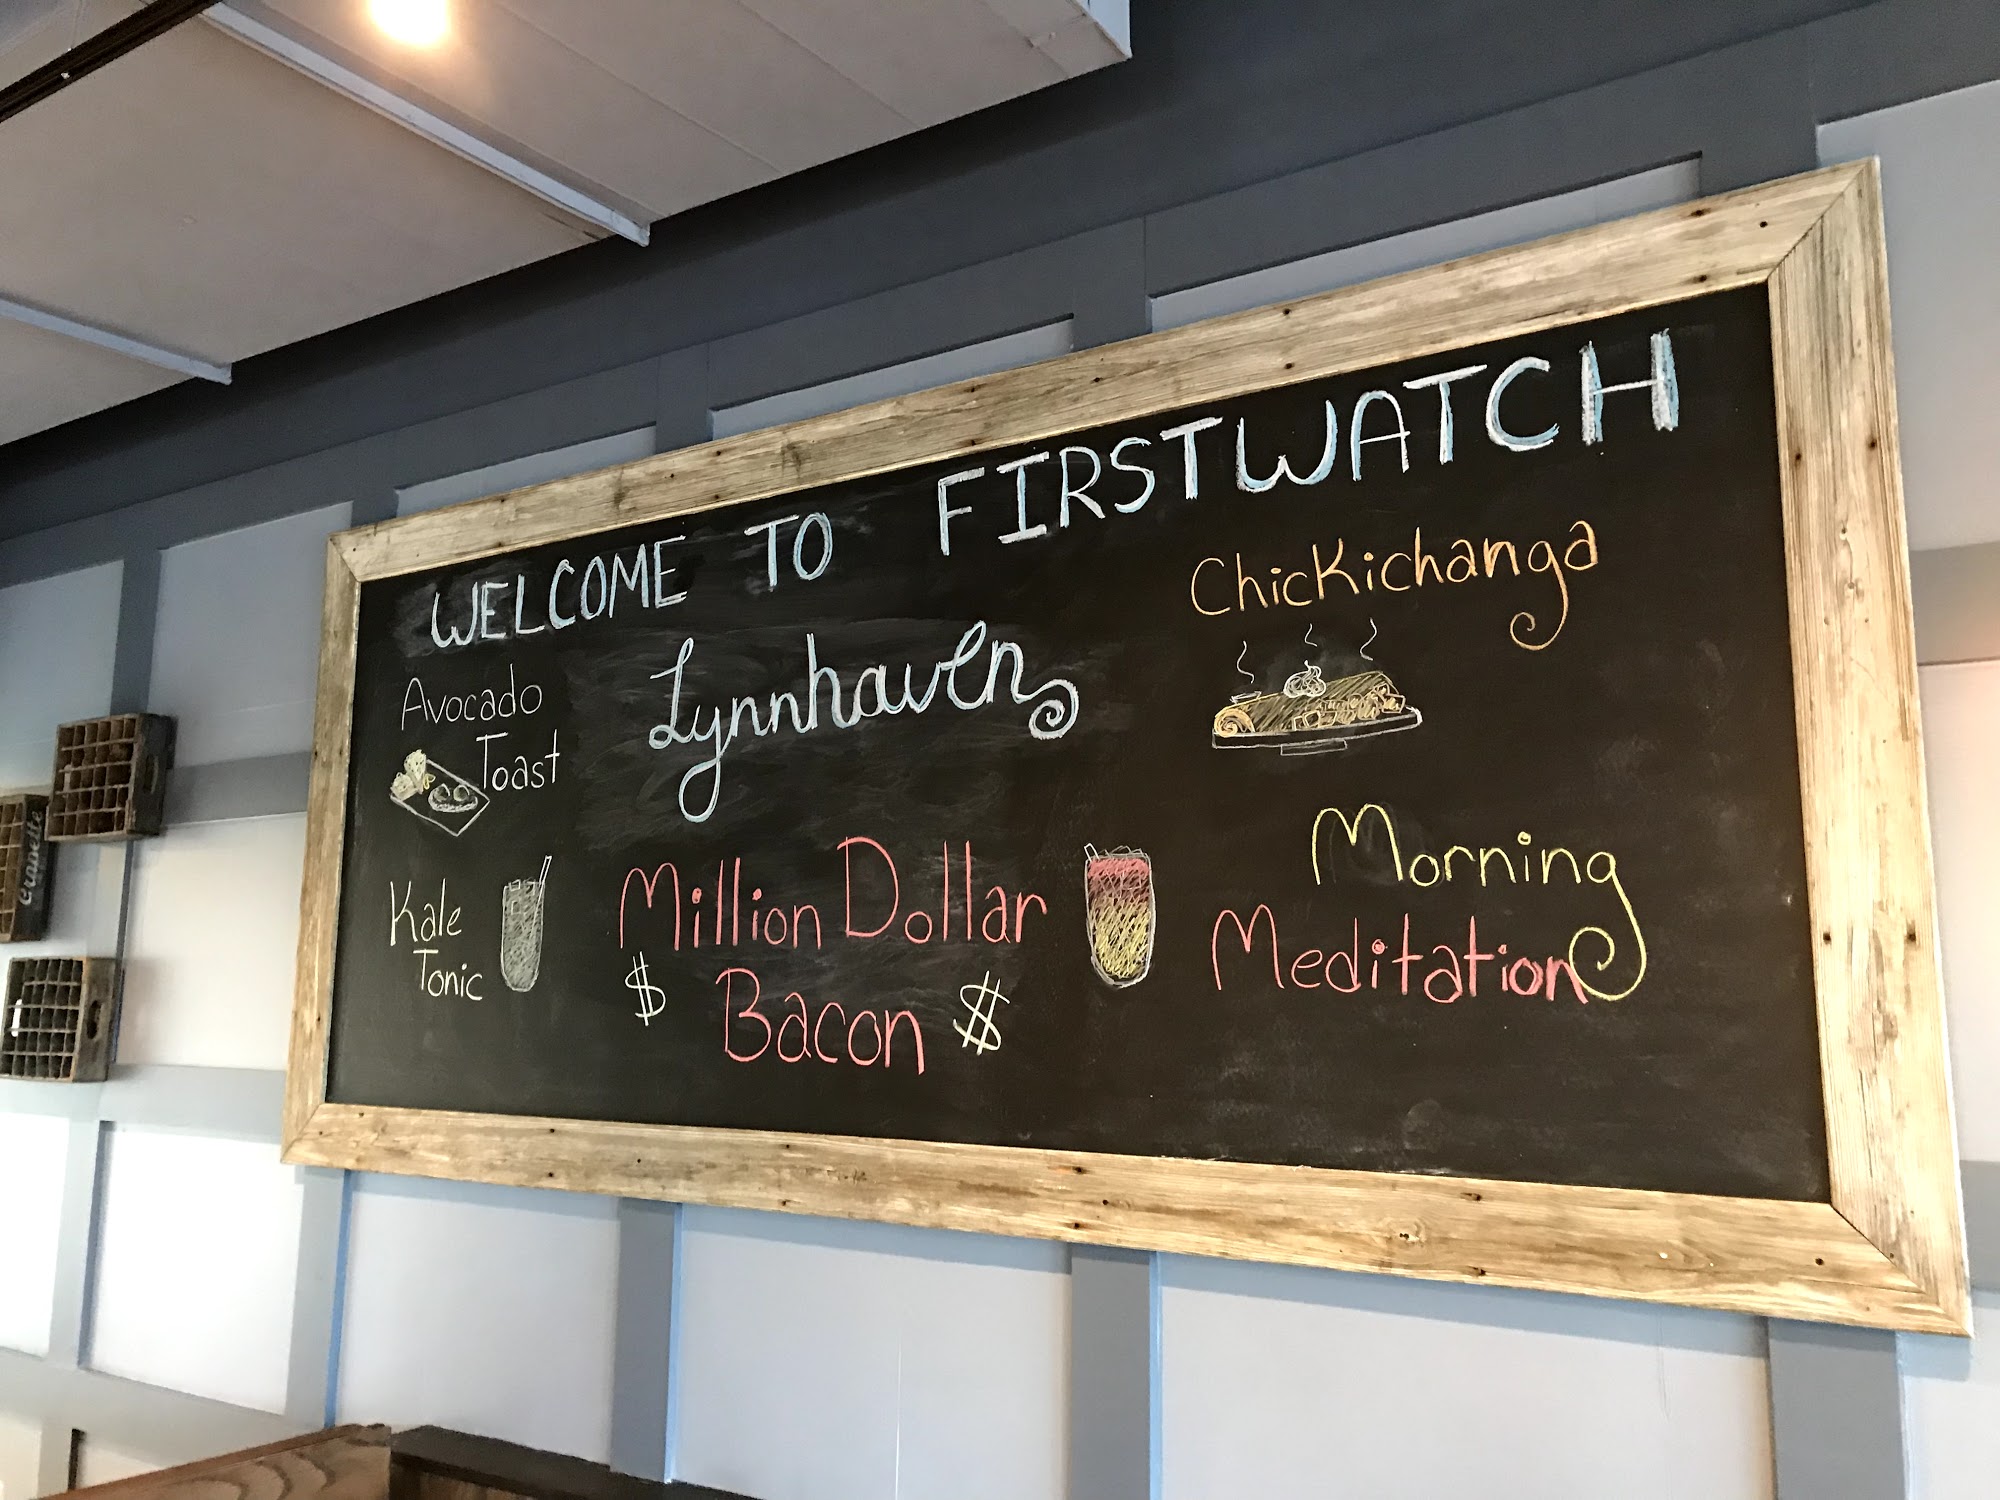 WELCOME TO FIRSTWATCH
Lynnhaven
Avocado
Toast
ChicKichanga
Kale
Tonic
Million Dollar
$ Bacon $
Morning
Meditation
Grapette